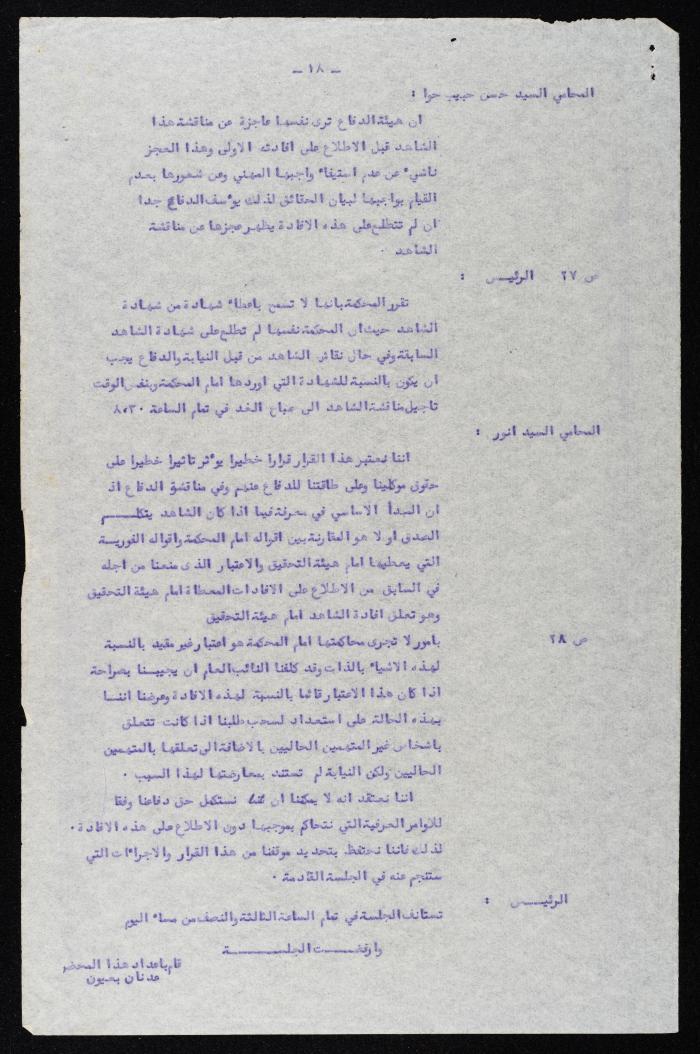 - ١٨ -
المحامي السيد حسن حبيب حوا :
ان هيئة الدفاع ترى نفسها عاجزة عن مناقشة هذا
الشاهد قبل الاطلاع على افادته الاولى وهذا العجز
ناشيء عن عدم استيفاء واجبها المهني وعن شعورها بعدم
القيام بواجبها لبيان الحقائق لذلك يؤسف الدفاع جدا
ان لم تتطلع على هذه الافادة يظهر عجزها عن مناقشة
الشاهد .
ص ٢٧ الرئيس :
تقرر المحكمة بانها لا تسمح باعطاء شهادة من شهادة
الشاهد حيث ان المحكمة نفسها لم تطلع على شهادة الشاهد
السابقة وفي حال نقاش الشاهد من قبل النيابة والدفاع يجب
ان يكون بالنسبة للشهادة التي اوردها امام المحكمة وبنفس الوقت
تاجيل مناقشة الشاهد الى صباح الغد في تمام الساعة ٨٫٣٠
المحامي السيد انور :
اننا نعتبر هذا القرار قرارا خطيرا يؤثر تاثيرا خطيرا على
حقوق موكلينا وعلى طاقتنا للدفاع عنهم وفي مناقشة الدفاع اذ
ان المبدأ الاساسي في معرفة فيما اذا كان الشاهد يتكلم
الصدق او لا هو المقارنة بين اقواله امام المحكمة واقواله الفورية
التي يعطيها امام هيئة التحقيق والاعتبار الذى منعنا من اجله
في السابق من الاطلاع على الافادات المعطاة امام هيئة التحقيق
وهو تعلق افادة الشاهد امام هيئة التحقيق
ص ٢٨ بامور لا تجرى محاكمتها امام المحكمة هو اعتبار غير مقيد بالنسبة
لهذه الاشياء بالذات وقد كلفنا النائب العام ان يجيبنا بصراحة
اذا كان هذا الاعتبار قائما بالنسبة لهذه الافادة وعرضنا اننا
بهذه الحالة على استعداد لسحب طلبنا اذا كانت تتعلق
باشخاص غير المتهمين الحاليين بالاضافة الى تعلقها بالمتهمين
الحاليين ولكن النيابة لم تستند بمعارضتها لهذا السبب .
اننا نعتقد انه لا يمكننا ان نستكمل حق دفاعنا وفقا
للاوامر العرفية التي نتحاكم بموجبها دون الاطلاع على هذه الافادة .
لذلك فاننا نحتفظ بتحديد موقفنا من هذا القرار والاجراءات التي
ستنجم عنه في الجلسة القادمة .
الرئيس :
تستانف الجلسة في تمام الساعة الثالثة والنصف من مساء اليوم
وارفضت الجلسة
قام باعداد هذا المحضر
عدنان بعيون